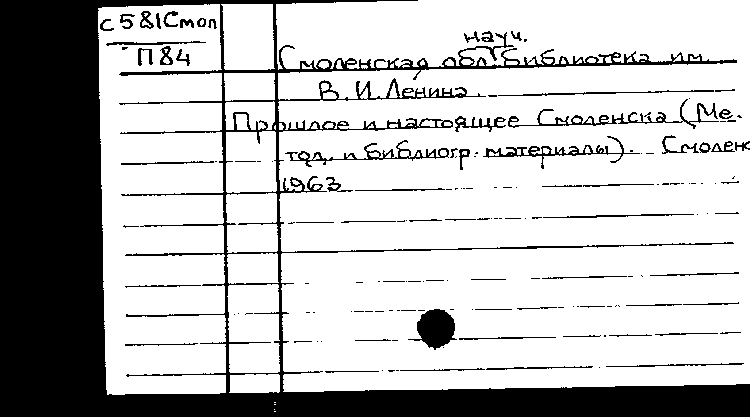 с581Смол
П84
Смоленская обл. науч. библиотека им.
В.И.Ленина.
Прошлое и настоящее Смоленска (Ме-
тод. и библиогр. материалы). Смоленс
1963